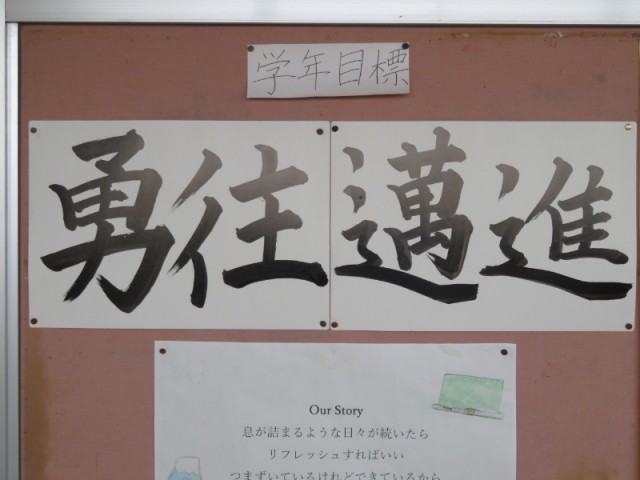 学年目標
勇往邁進
Our Story
息が詰まるような日々が続いたら
リフレッシュすればいい
つまずいているけれどできているから